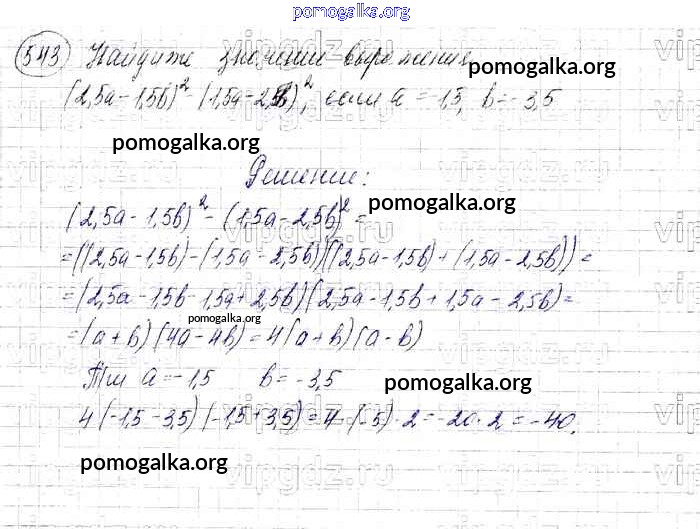 pomogalka.org
543 Найдите значение выражения
pomogalka.org
(2,5a-1,5b)² - (1,5a-2,5b)², если a = -1,5, b = -3,5
pomogalka.org
Решение:
(2,5a - 1,5b)² - (1,5a - 2,5b)² =
pomogalka.org
= ((2,5a-1,5b) - (1,5a - 2,5b))((2,5a-1,5b) + (1,5a-2,5b)) =
= (2,5a - 1,5b - 1,5a + 2,5b)(2,5a - 1,5b + 1,5a - 2,5b) =
pomogalka.org
= (a+b)(4a-4b) = 4(a+b)(a-b)
a = -1,5 b = -3,5
pomogalka.org
4(-1,5 - 3,5)(-1,5 + 3,5) = 4·(-5)·2 = -20·2 = -40.
pomogalka.org